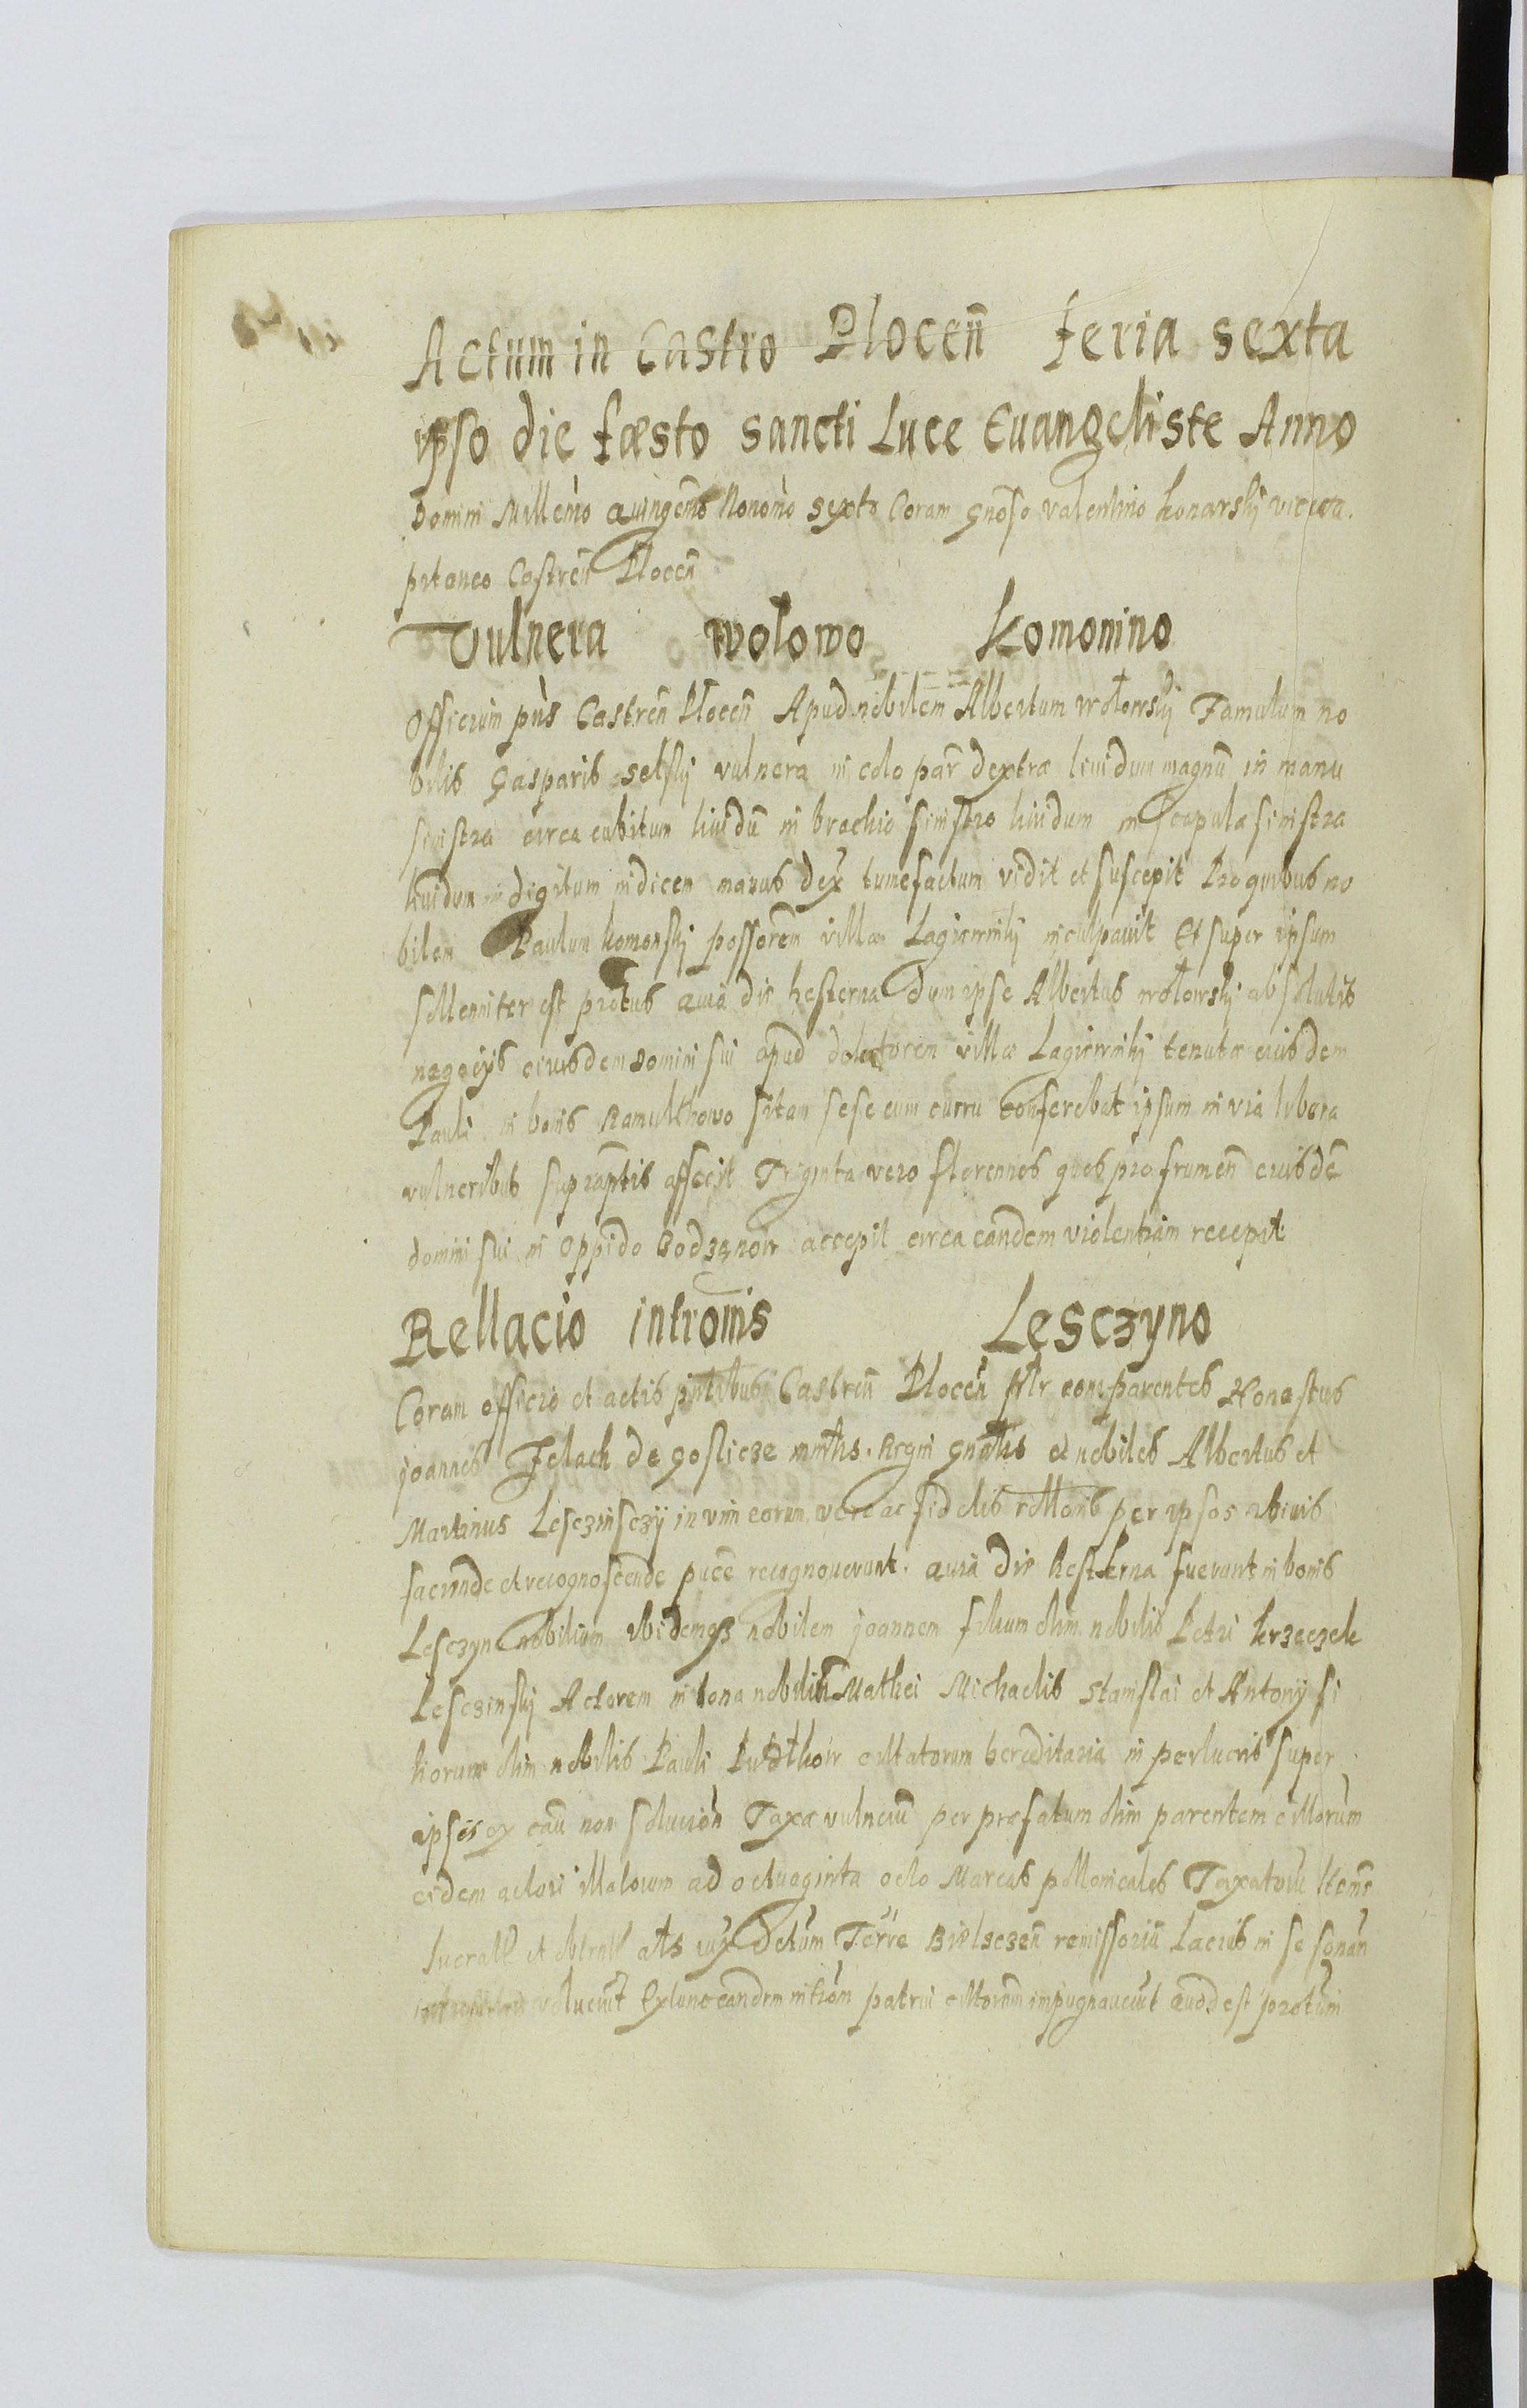 Actum in Castro Plocen̄ feria sexta
ipso die fæsto sancti Luce Euangeliste Anno
Domini Millem̄o Quingēmo Nonoḿo sexto Coram Gnōso valentino konarskij viceca
pitaneo Castren̄ Plocen̄
Vulnera wołowo Komonino
Officium pn̄s Castren̄ Plocen̄ Apud nobilem Albertum wołowskij Famulum no
bilis Gasparis selskij vulnera in colo par̄ dextræ liuidum magnū in manu
sinistra circa cubitum liuidū in brachio sinistro liuidum in scapula sinistra
liuidum in digitum indicem manus dex tumefactum vidit et suscepit Pro quibus no
bilem Paulum komonskij possorēm villæ Lagiewnikij inculpauit Et super ipsum
sollenniter est prōtus quia die hesterna Dum ipse Albertus wołowskij absolutis
negocijs eiusdem domini sui apud villæ Lagiewnikij tenutæ eiusdem
Pauli in bonis Ramulthowo sitam sese cum curru conferebat ipsum in via libera
vulneribus supraptis affecit Triginta vero florenos quos pro frumen̄ eiusdē
domini sui in oppido Bodzanow accepit circa eandem violentiam recepit
Rellacio intromis Lesczyno
Coram officio et actis pn̄tibus Castren̄ Plocen̄ pltr comparentes Honestus
joannes Jelach de Goslicze mintrls. Regni Gn̄alis et nobiles Albertus et
Martinus Lesczinsczij in vim eorum veræ ac fidelis rellonis per ipsos
faciende et recognoscende pucē recognouerunt. quia die hesterna fuerunt in bonis
Lesczyno nobilium ibidemqz nobilem joannem filium olim nobilis Petri krzeczek
Lesczinskij Actorem in bona nobiliū Mathei Michaelis Stanislai et Antonij fi
liorum olim nobilis Pauli citatorum hereditaria in per lucris super
ipsis ex cau non solucion̄ Taxæ vulnerū per præfatum olim parentem cittorum
eidem actori illatorum ad octuaginta octo Marcas pollonicales Taxatorū
lucrat et als iux Dctum Terre Bielsczen̄ remissorium Lacius in se sonan̄
voluerūt Extunc eandem intrōm patrui cittorum impugnauerūt quod est protum